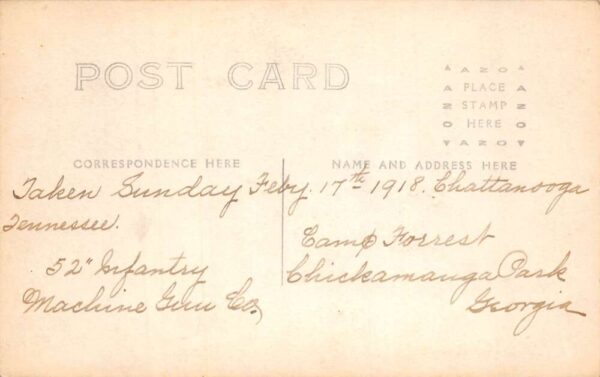 POST CARD
AZO
PLACE
STAMP
HERE
AZO
CORRESPONDENCE HERE
NAME AND ADDRESS HERE
Taken Sunday Feby. 17th 1918. Chattanooga
Tennessee.
52" Infantry
Machine Gun Co.
Camp Forrest
Chickamauga Park
Georgia